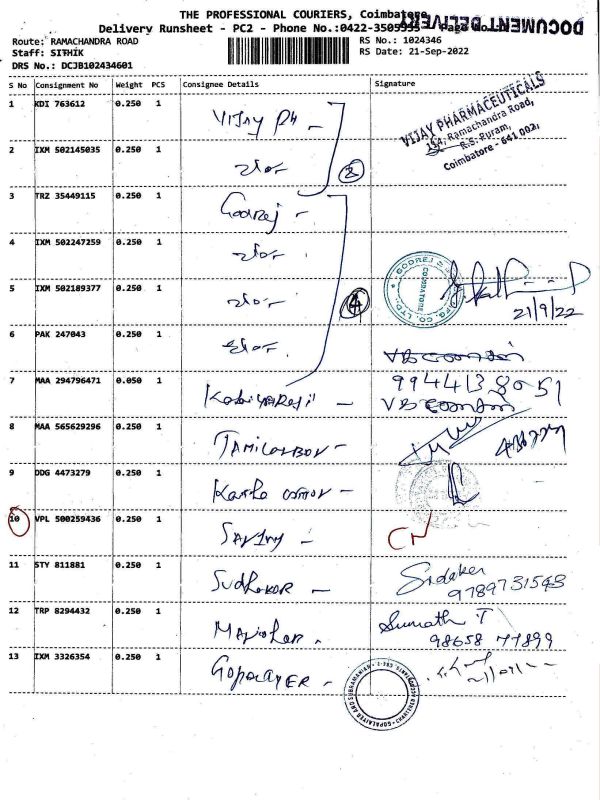 THE PROFESSIONAL COURIERS, Coimbatore
DOCUMENT DELIVERY
Delivery Runsheet - PC2 - Phone No.:0422-3505555 Page No.
Route: RAMACHANDRA ROAD
RS No.: 1024346
Staff: SITHIK
RS Date: 21-Sep-2022
DRS No.: DCJB102434601
S No Consignment No Weight PCS Consignee Details Signature
1 KDI 763612 0.250 1 Vijay Ph -
VIJAY PHARMACEUTICALS
154, Ramachandra Road,
R.S. Puram,
Coimbatore - 641 002.
2 IXM 502145035 0.250 1
2
3 TRZ 35449115 0.250 1 Godrej -
4 IXM 502247259 0.250 1
5 IXM 502189377 0.250 1
4
GODREJ
COIMBATORE
21/9/22
6 PAK 247043 0.250 1
7 MAA 294796471 0.050 1
9944138051
8 MAA 565629296 0.250 1
9 DDG 4473279 0.250 1
10 VPL 500259436 0.250 1
CN
11 STY 811881 0.250 1 Sudhakar -
9789731543
12 TRP 8294432 0.250 1 Manohar.
Sumathi T
98658 77899
13 IXM 3326354 0.250 1 Gopalayer -
GOPALAIYER AND SUBRAMANIAN
CHARTERED ACCOUNTANTS